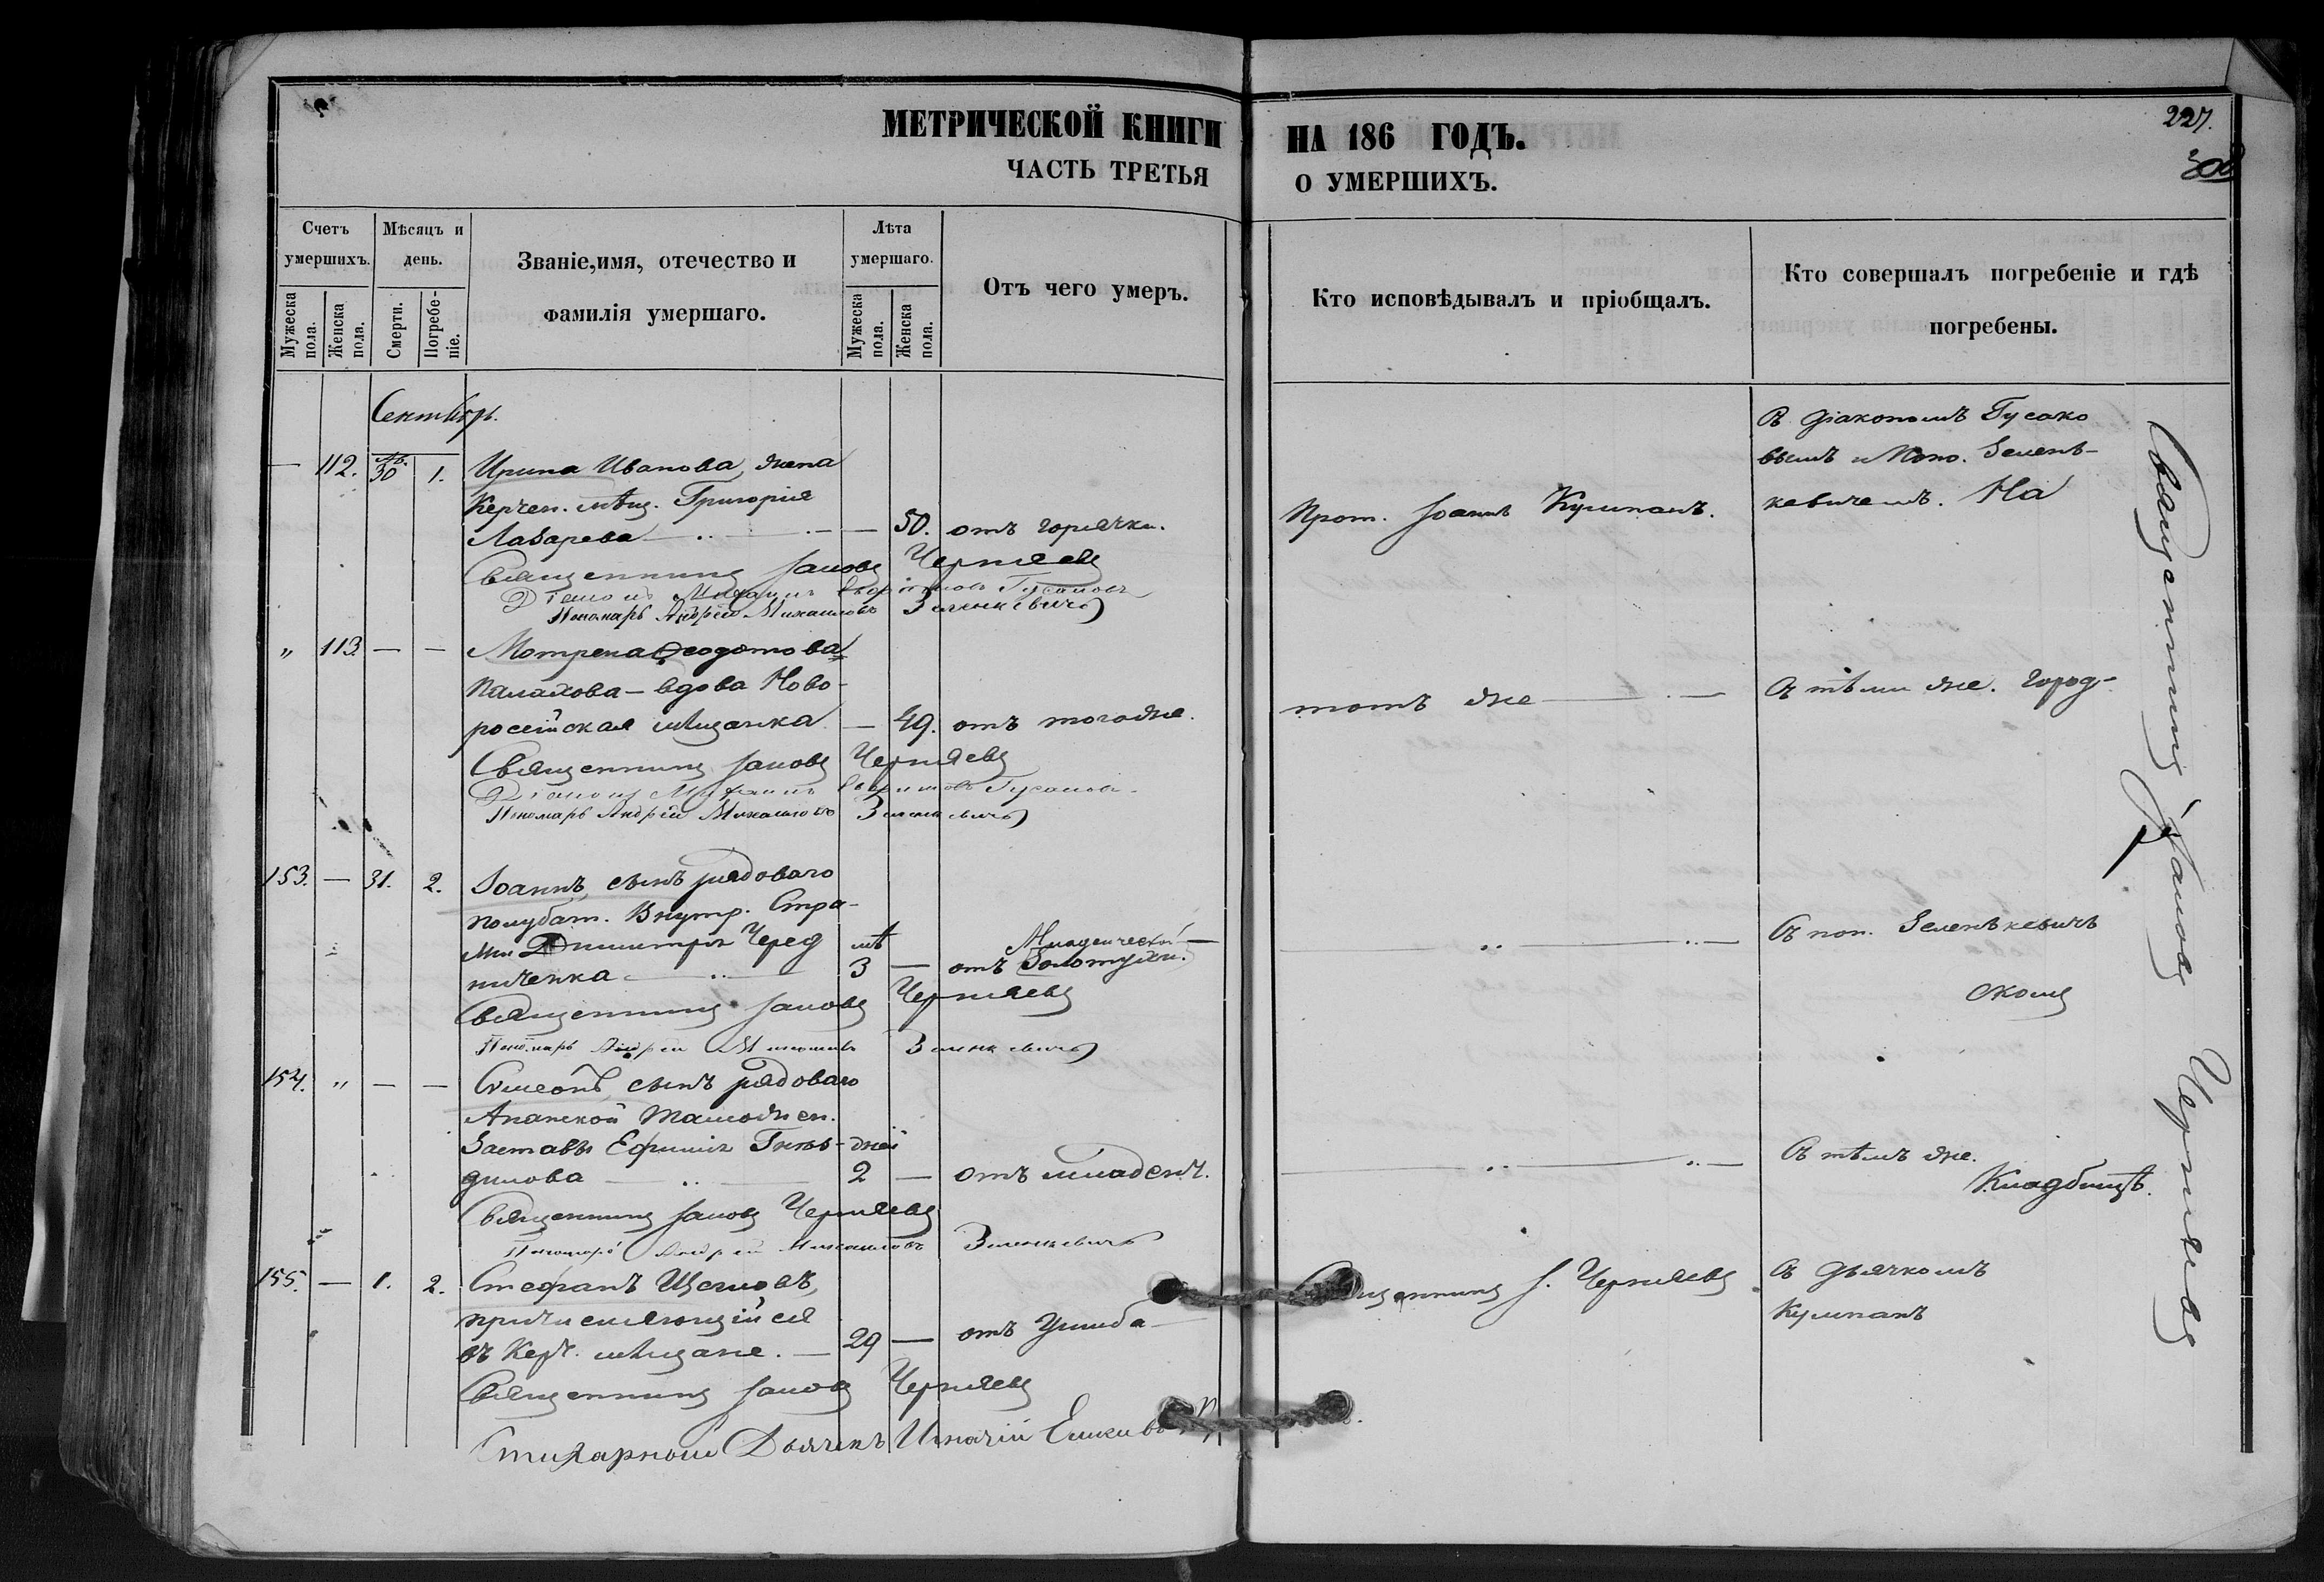 МЕТРИЧЕСКОЙ КНИГИ НА 186 ГОДЪ.
ЧАСТЬ ТРЕТЬЯ О УМЕРШИХЪ.
227.
Счетъ умершихъ.
Мужеска пола.
Женска пола.
Мѣсяцъ и день.
Смерти.
Погребеніе.
Званіе,имя, отечество и
фамилія умершаго.
Лѣта умершаго.
Мужеска пола.
Женска пола.
Отъ чего умеръ.
Кто исповѣдывалъ и пріобщалъ.
Кто совершалъ погребеніе и гдѣ
погребены.
Сентябрь.
— 112. Ав. 30 1. Ирина Иванова, жена
Керчен. мѣщ. Григорія
Лазарева — 50. отъ горячки.
Прот. Іоаннъ Кумпанъ.
Съ діакономъ Гусако
вымъ и Поно. Зелень-
кевичемъ. На
Священникъ Іаковъ Черняевъ
Діаконъ Михаилъ Гусаковъ
Пономарь Андрей Михаиловъ Зеленкевичъ
„ 113. — — Мотрена Ѳеодотова
Палахова — вдова Ново-
россійская мѣщанка — 49. отъ тогоже.
тотъ же —
Съ тѣми же. Город-
Священникъ Іаковъ Черняевъ
Діаконъ Михаилъ Гусаковъ
Пономарь Андрей Михаиловъ Зеленкевичъ
153. — 31. 2. Іоаннъ, сынъ рядоваго
полубат. Внутр. Стра-
жи Димитрія Черед
ниченка — лѣ 3 — отъ Младенческой Золотухи.
Съ пон. Зеленькевичъ
скомъ
Священникъ Іаковъ Черняевъ
Пономарь Андрей Михаиловъ Зеленкевичъ
154. „ — — Симеонъ, сынъ рядоваго
Анапской Таможен.
Заставы Ефимія Гнѣз-
дилова — дней 2 — отъ младенч.
Съ тѣмъ же.
Кладбищѣ.
Священникъ Іаковъ Черняевъ
Пономарь Андрей Михаиловъ Зеленкевичъ
155. — 1. 2. Стефанъ
причисляющійся
въ Керч. мѣщане. — 29 — отъ Ушиба
Священникъ І. Черняевъ
Съ дьячкомъ
Кумпанъ
Священникъ Іаковъ Черняевъ
Стихарный Дьячекъ
Священникъ Іаковъ Черняевъ